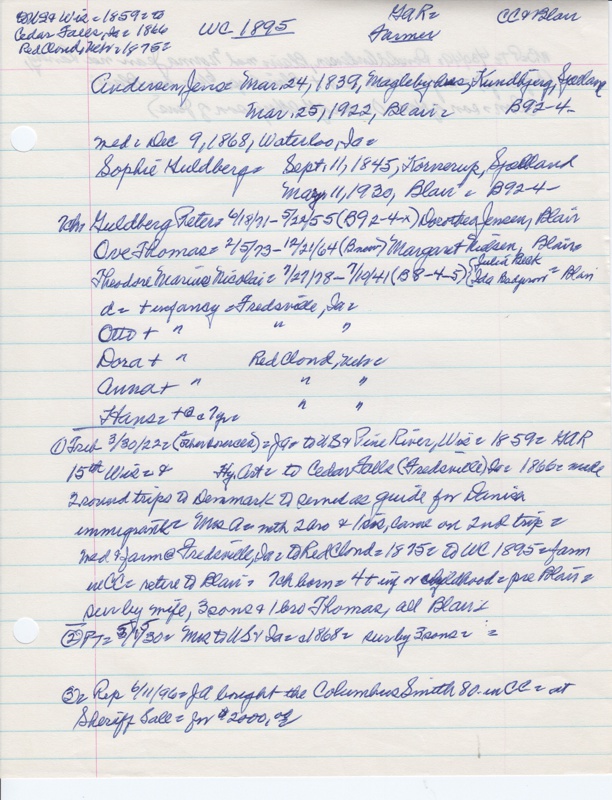 to US & Wis = 1859 = to
Cedar Falls, Ia = 1866
Red Cloud, Neb = 1875 =
WC 1895
GAR =
Farmer
CC & Blair
Andersen, Jens = Mar. 24, 1839, Magleby Kundbjerg, Sjelland
Mar. 25, 1922, Blair = B92-4-
med = Dec 9, 1868, Waterloo, Ia =
Sophie Guldberg = Sept. 11, 1845, Kornerup, Sjelland
May 11, 1930, Blair = B92-4-
7ch = Guldberg Peter = 6/18/71 - 5/22/55 (B92-4-) Dorothea Jensen, Blair
Ove Thomas = 2/5/73 - 12/21/64 Margaret Nielsen, Blair =
Theodore Marius Nicolai = 7/27/78 - 7/19/41 (B8-4-5) Julia Beck
Ida = Blair
d = + infancy = Fredsville, Ia =
Otto + " " "
Dora + " Red Cloud, Neb =
Anna + " " "
Hans = + @ = 7 yr =
① Trib 3/30/22 = = JA = to US & Pine River, Wis = 1859 = GAR
15th Wis = & Hy. Art = to Cedar Falls (Fredsville) Ia = 1866 = made
2 round trips to Denmark to served as guide for Danish
immigrants = Mrs A = with 2 bro & 1 sis, came on 2nd trip =
med & farm @ Fredsville, Ia = to Red Cloud = 1875 = to WC 1895 = farm
in CC = retire to Blair = 7ch born = 4 + inf or childhood = pre Blair =
sur by wife, 3 sons & 1 bro Thomas, all Blair =
② PT = 5/15/30 = Mrs to US & Ia = 1868 = sur by 3 sons = =
3 = Rep 6/11/96 = JA bought the Columbus Smith 80 in CC = at
Sheriff Sale = for $2000.